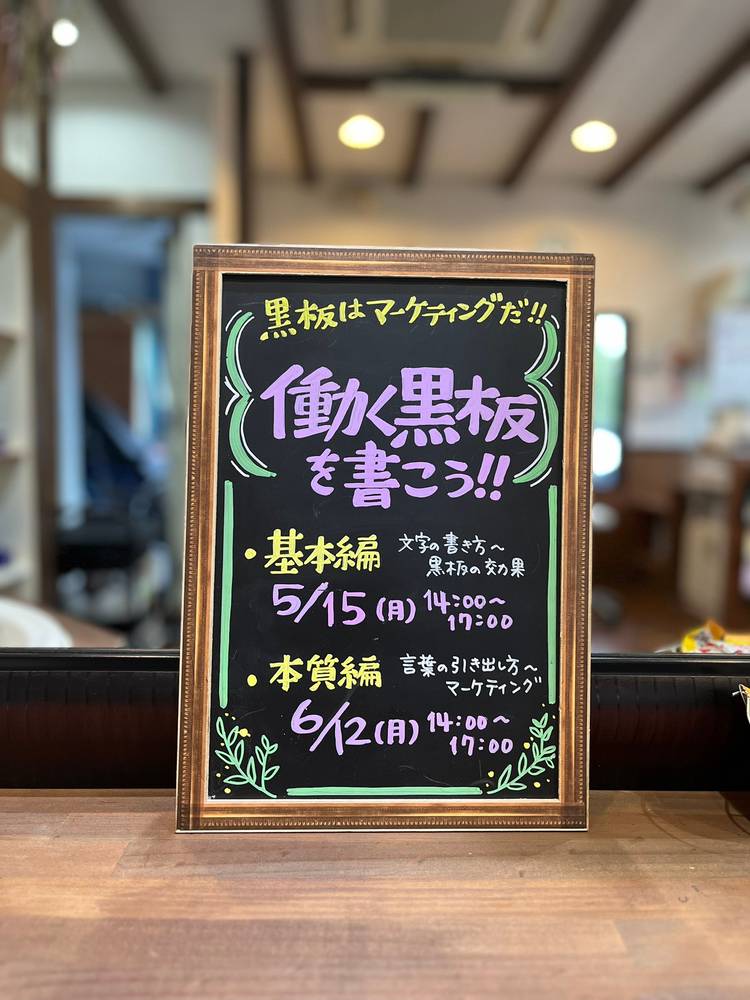 黒板はマーケティングだ!!
働く黒板
を書こう!!
・基本編 文字の書き方〜
黒板の効果
5/15(月) 14:00〜
17:00
・本質編 言葉の引き出し方〜
マーケティング
6/12(月) 14:00〜
17:00